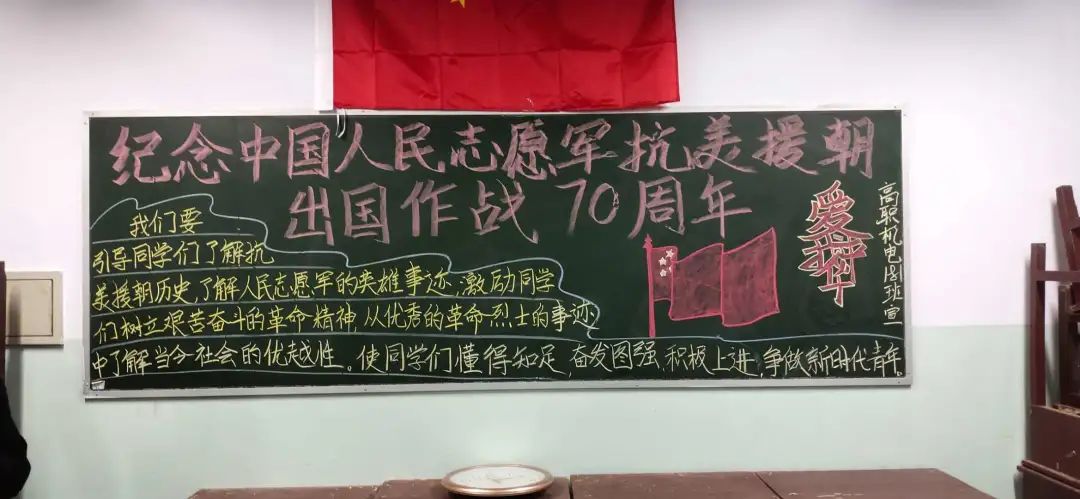 纪念中国人民志愿军抗美援朝
出国作战70周年
我们要
引导同学们了解抗
美援朝历史,了解人民志愿军的英雄事迹,激励同学
们树立艰苦奋斗的革命精神,从优秀的革命烈士的事迹
中了解当今社会的优越性。使同学们懂得知足,奋发图强,积极上进,争做新时代青年。
高职机电181班宣